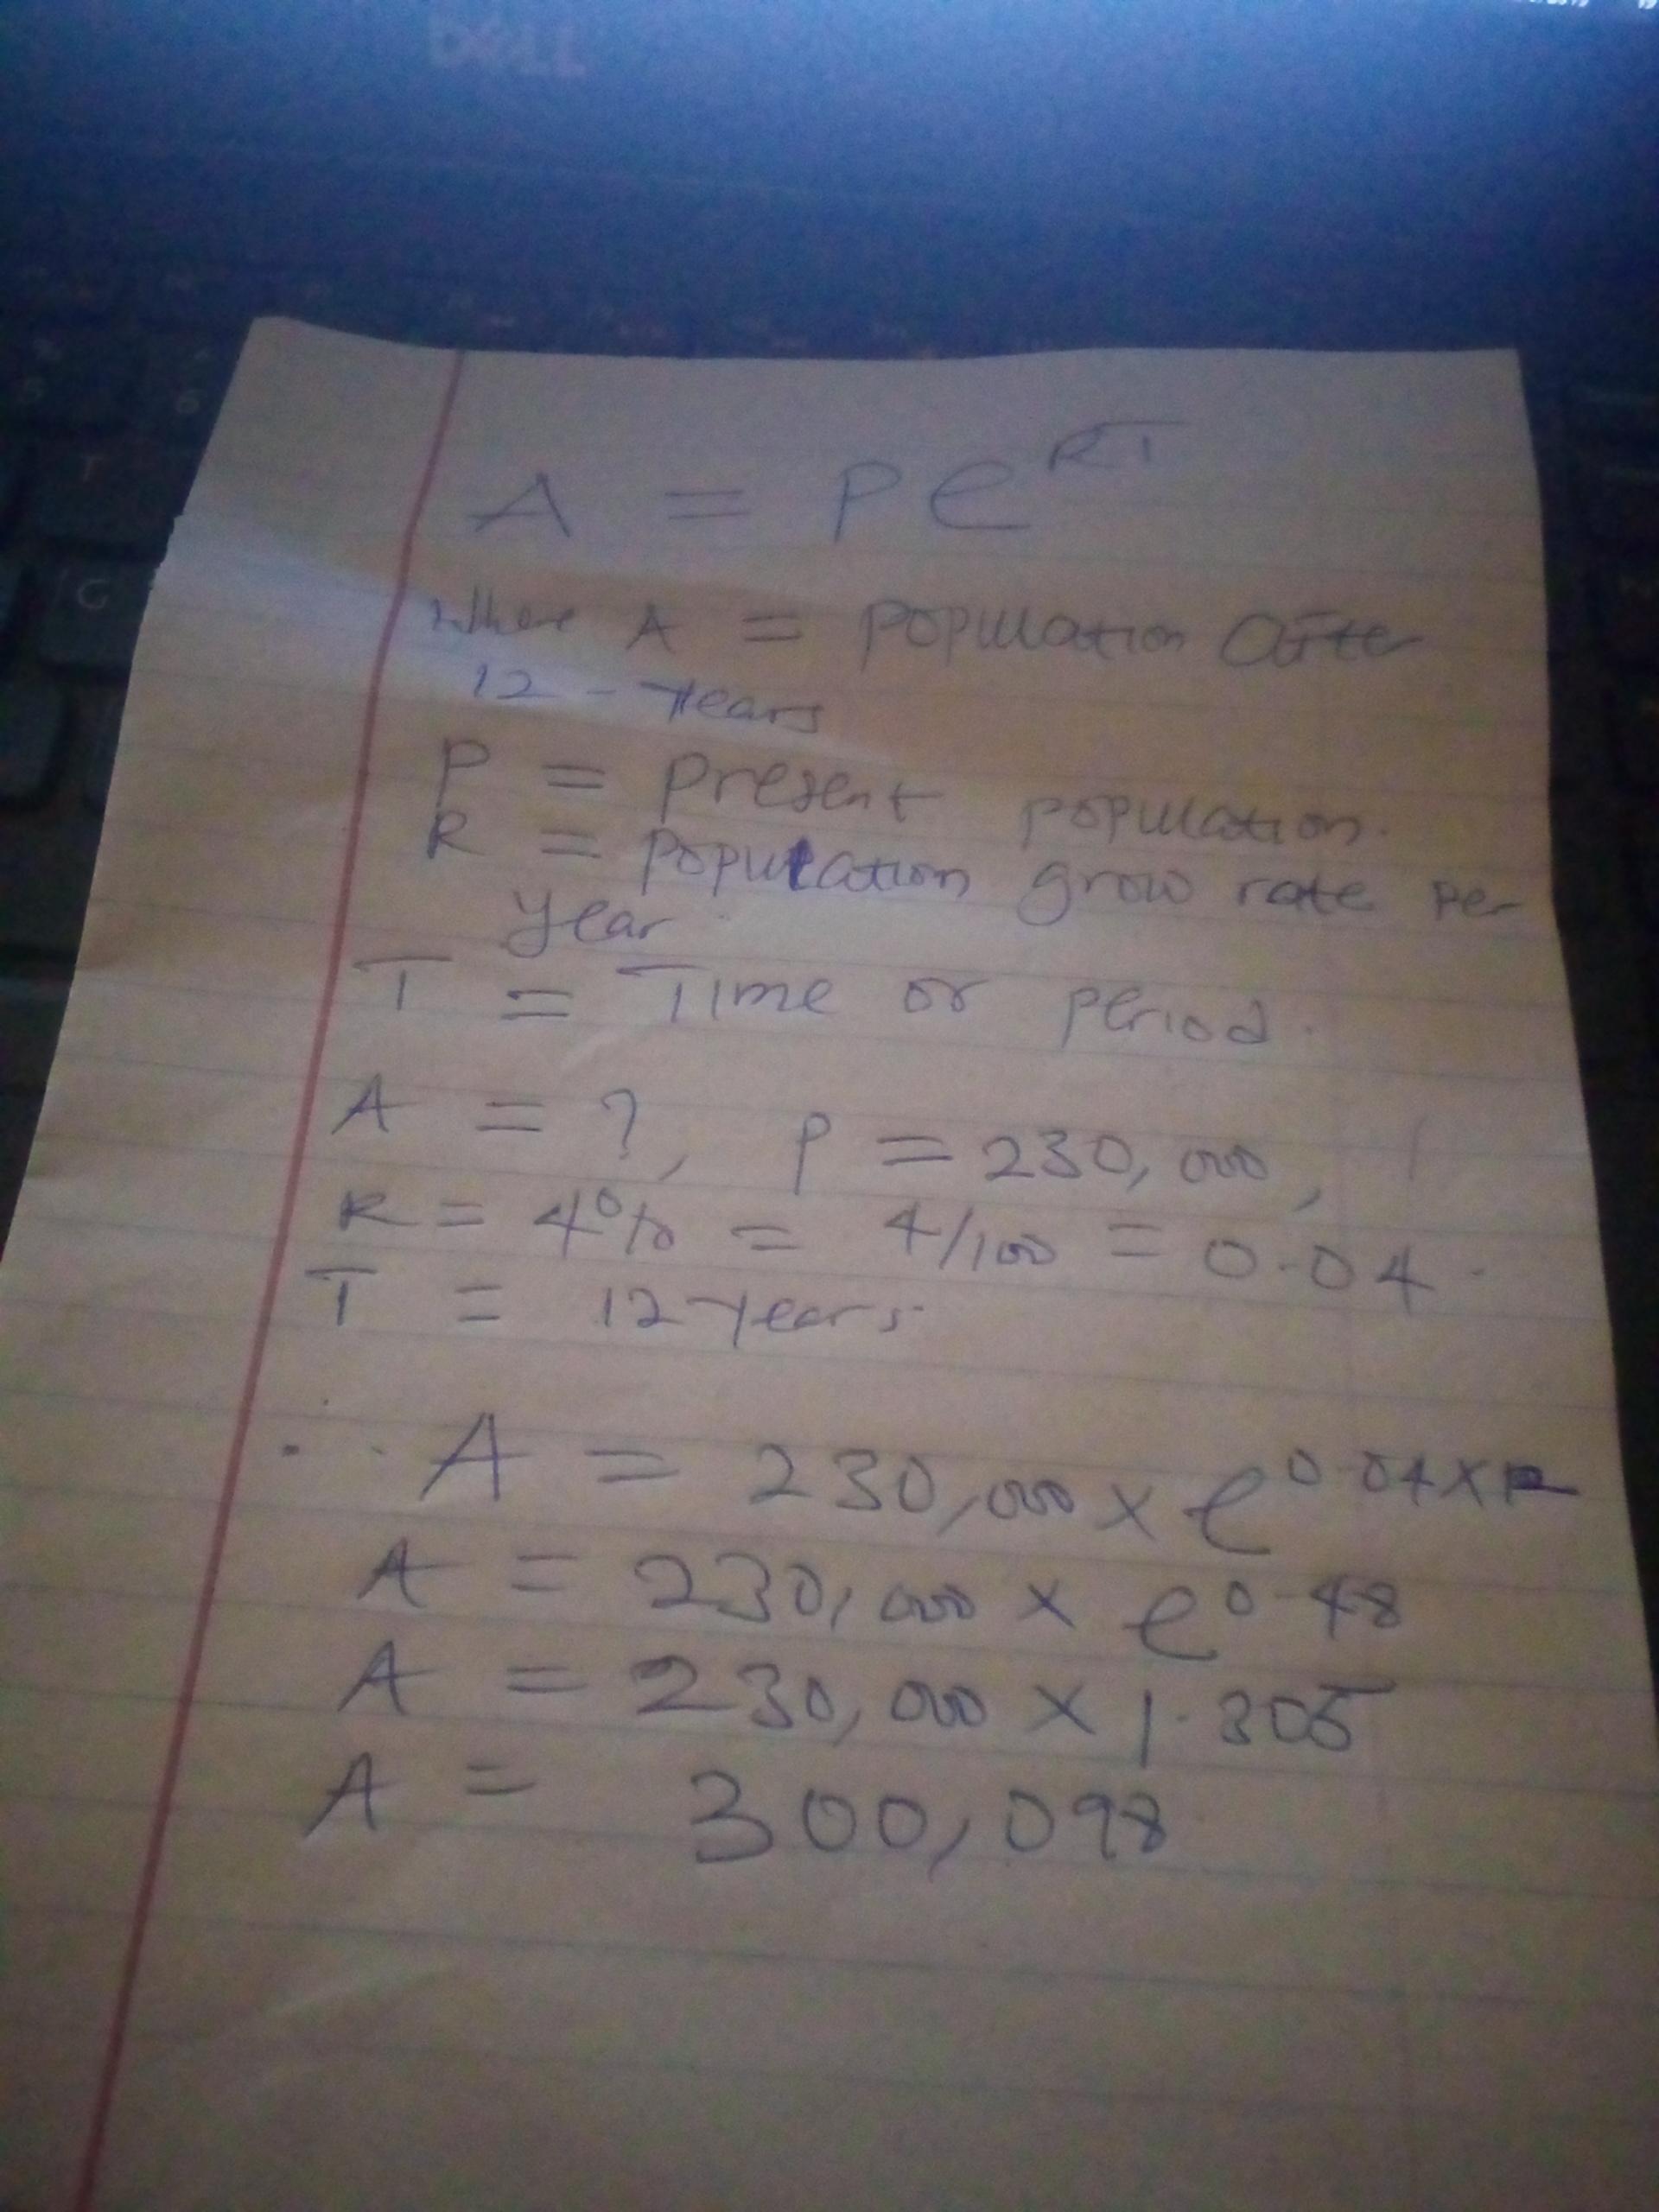 DELL
A = Pe^RT
Where A = population after
12 - Years
P = Present population.
R = population grow rate per
year.
T = Time or period.
A = ?, P = 230,000,
R = 4% = 4/100 = 0.04.
T = 12 years.
∴ A = 230,000 × e^0.04×12
A = 230,000 × e^0.48
A = 230,000 × 1.305
A = 300,098